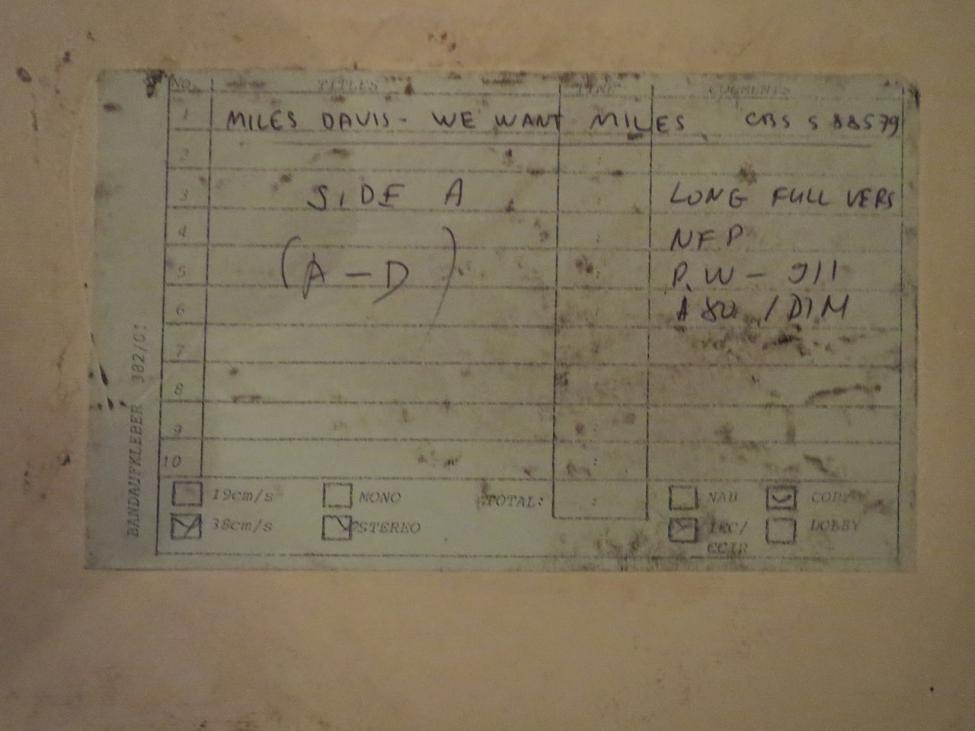 NO. TITLES TIME COMMENTS
1 MILES DAVIS - WE WANT MILES CBS S 88579
2
3 SIDE A LONG FULL VERS
4 NFP
5 (A - D) P.W - 911
6 / DIM
7
8
9
10
19cm/s MONO TOTAL: : NAB COPY
38cm/s STEREO IEC/ DOLBY
CCIR
BANDAUFKLEBER 382/01